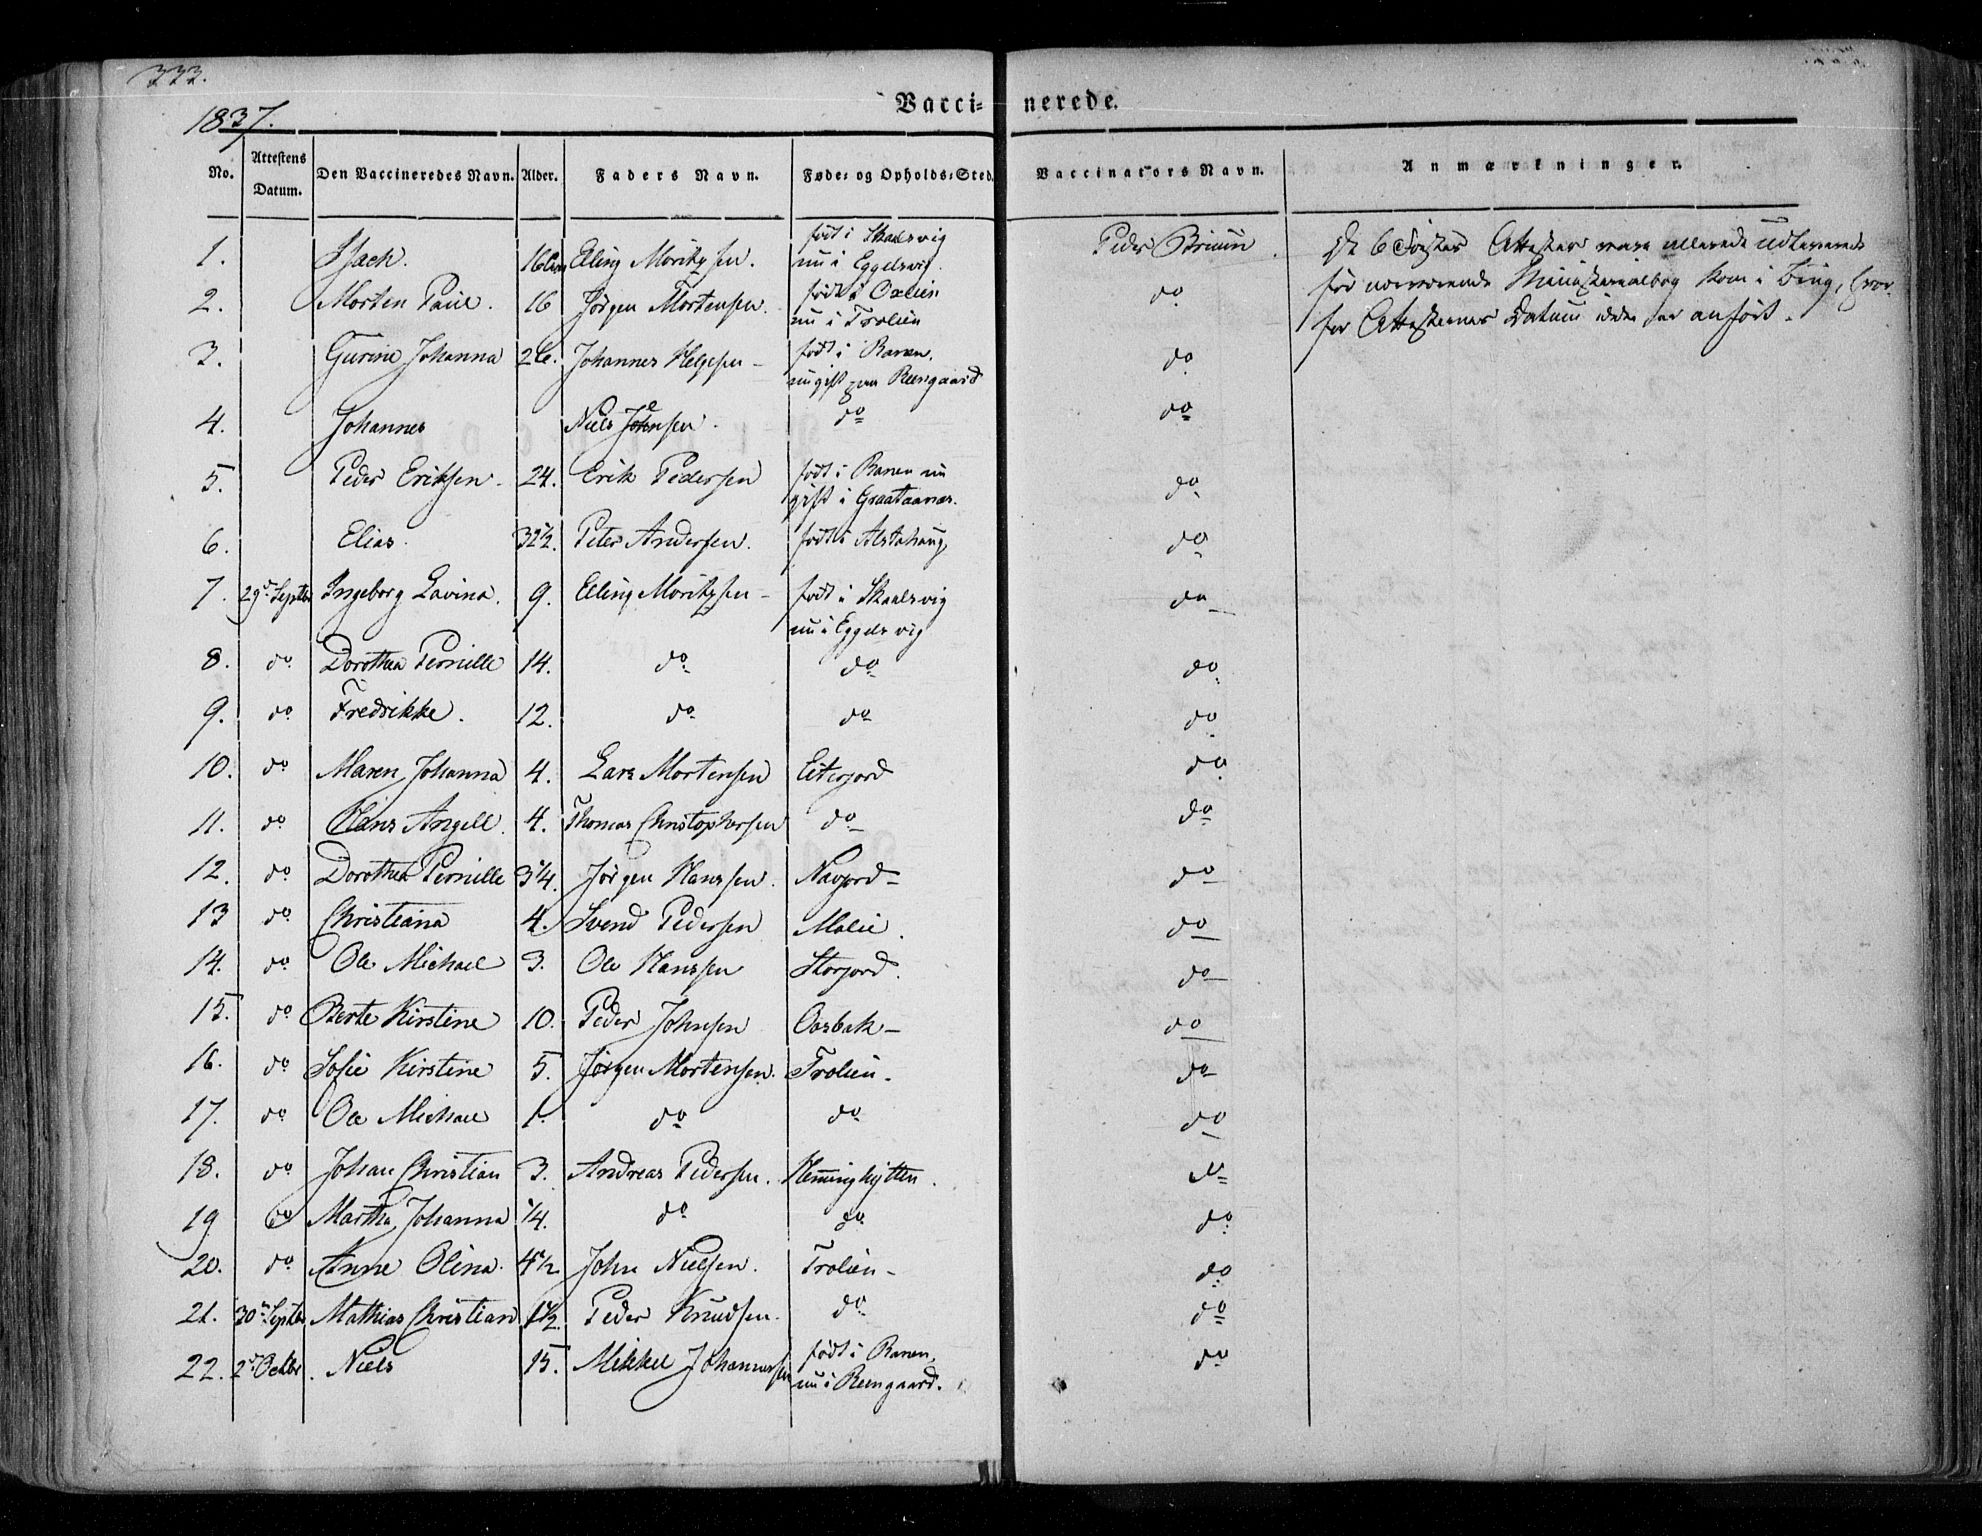 333.
1837.
Vacci= nerede.
No. Attestens Datum. Den Vaccineredes Navn. Alder. Faders Navn. Føde= og Opholds=Sted. Vaccinators Navn. Anmærkninger.
1. Isach. 16 Elling Moritzsen. født i Skaalsvig nu i Eggelsvig. Peder Bruun De 6 første Attester vare allerede udleverede
2. Morten Paul. 16 Jørgen Mortensen. født i Oxlien nu i Trolien do før nærværende Ministerialbog kom i Brug, hvor-
for Attesternes Datum ikke er anført.
3. Gurine Johanna 26. Johannes Helgesen - født i Ranen, nu gift paa Reengaard do
4. Johannes Niels Johnsen. do do
5. Peder Eriksen. 24. Erik Pedersen født i Ranen nu gift i Graataanæs. do
6. Elias. 3 1/2. Peter Andersen. født i Alstahaug, do
7. 29d Septbr Ingeborg Lavina. 9. Elling Moritzsen - født i Skaalsvig nu i Eggelsvig do
8. do Dorothea Pernille 14. do do do
9. do Fredrikke. 12. do do do
10. do Maren Johanna 4. Lars Mortensen Eiterjord do
11. do Hans Angell. 4. Thomas Christophersen do do
12. do Dorothea Pernille 3/4. Jørgen Hanssen. Navjord - do
13 do Christiana 4. Svend Pedersen Molie. do
14. do Ole Michael 3. Ole Hanssen Storjord. do
15. do Berte Kirstine 10. Peder Johnsen Oosbak - do
16. do Sofie Kirstine 5. Jørgen Mortensen. Trolien. do
17. do Ole Michael 1. do do do
18. do Johan Christian 3. Andreas Pedersen. Hemminghytten. do
19. do Martha Johanna 1/4. do do do
20. do Anne Olina. 4 1/2 John Nielsen. Trolien - do
21. 30te Septbr Mathias Christian 1 1/2. Peder Knudsen. do do
22. 2d Octbr. Niels 15. Mikkel Johannessen født i Ranen, nu i Reengaard. do